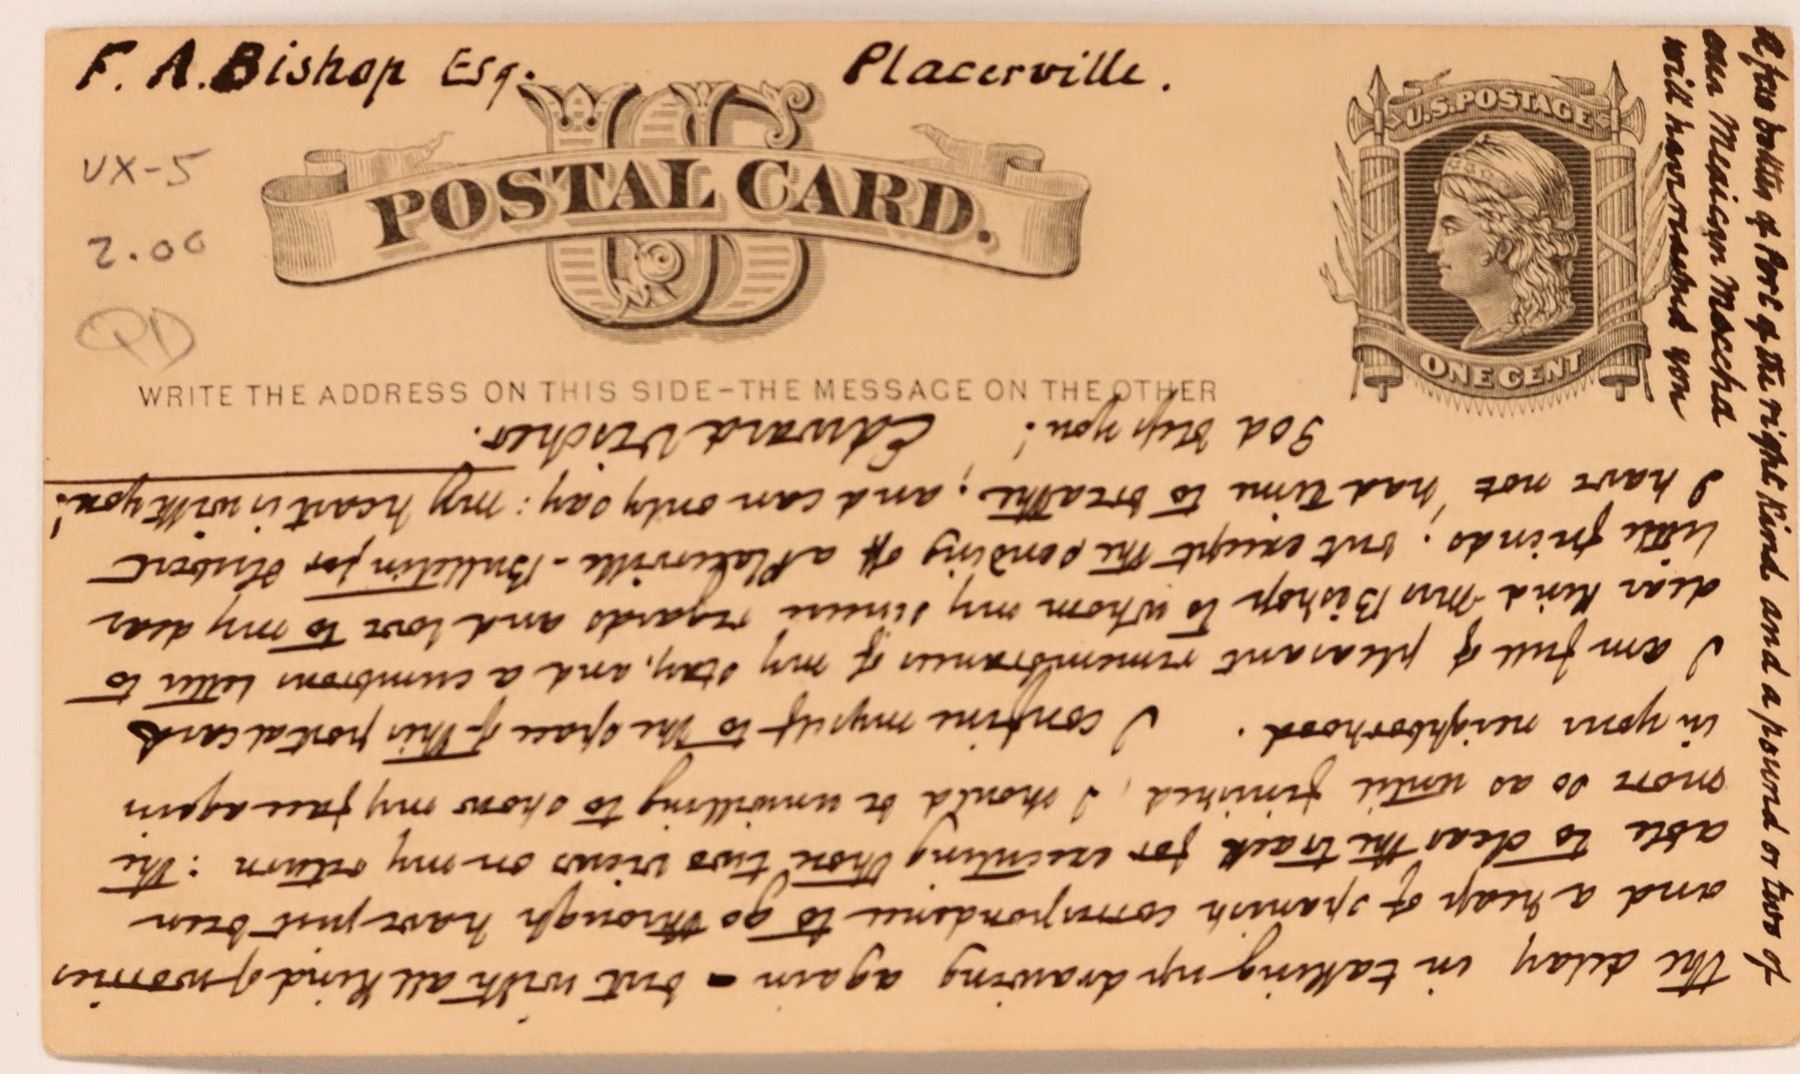 F. A. Bishop Esq. Placerville.
UX-5
2.00
PD
US
POSTAL CARD.
U.S. POSTAGE
ONE CENT
WRITE THE ADDRESS ON THIS SIDE-THE MESSAGE ON THE OTHER
The delay in taking up drawing again - but with all kind of worries
and a heap of spanish correspondence to go through have just been
able to clear the track for executing those two views on my return: the
more so as until finished, I should be unwilling to show my face again
in your neighborhood. I confine myself to the space of this postal card
I am full of pleasant remembrances of my stay, and a cumbrous letter to
dear kind Mrs Bishop to whom my sincere regards and love to my dear
little friends. but except the sending off a Placerville-Bulletin for Hubert
I have not had time to breathe; and can only say: my heart is with you!
God bless you! Edward Vischer.
A few bottles of Port of the right kind and a pound or two of
our Mexican Moccha
will have reached you